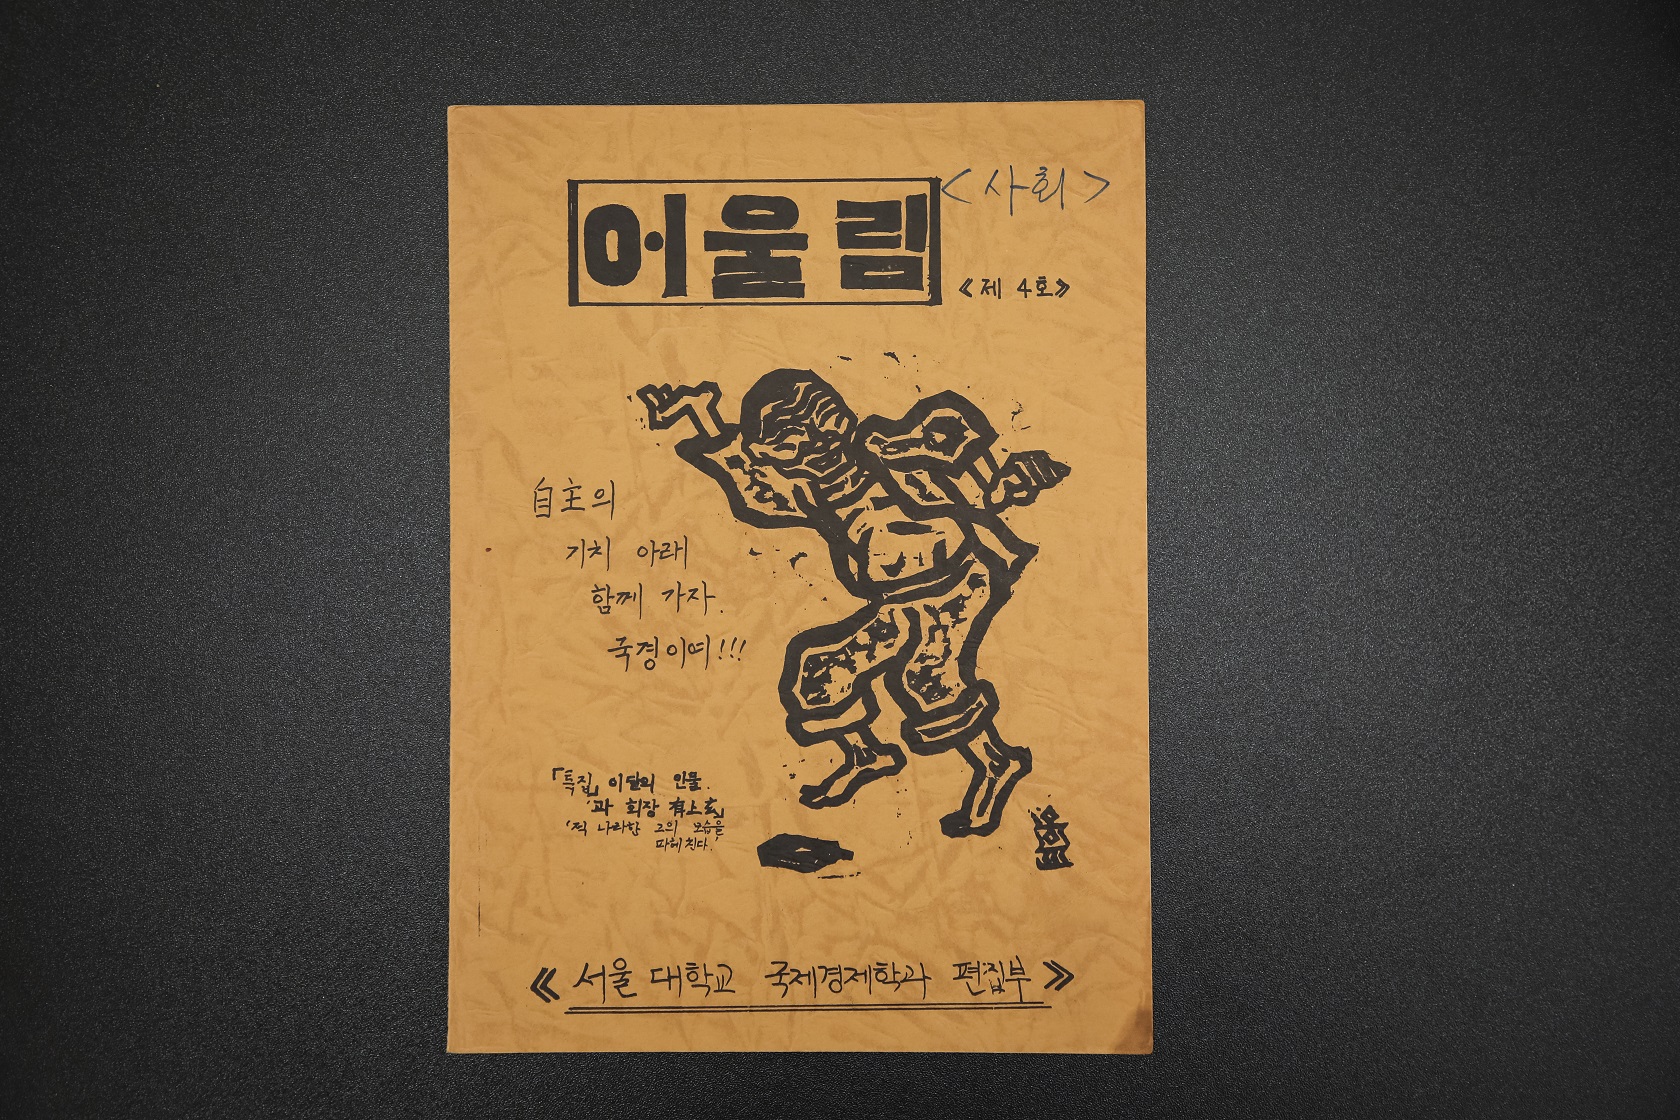 어울림
<사회>
《제 4호》
自主의
기치 아래
함께 가자.
국경이여!!!
「특집」 이달의 인물.
'과 회장 有上玄」
'적 나라한 그의 모습을
파헤친다.'
《서울 대학교 국제경제학과 편집부》